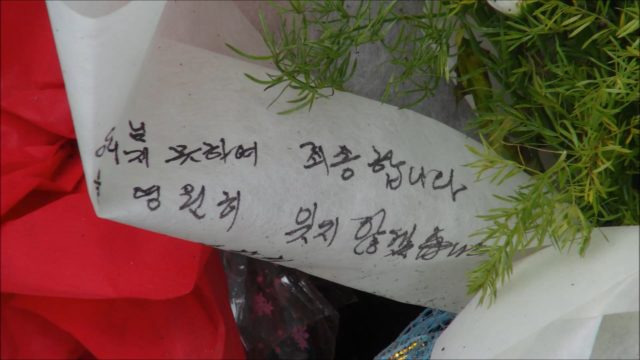 못하여 죄송합니다
영원히 잊지 않겠습니다